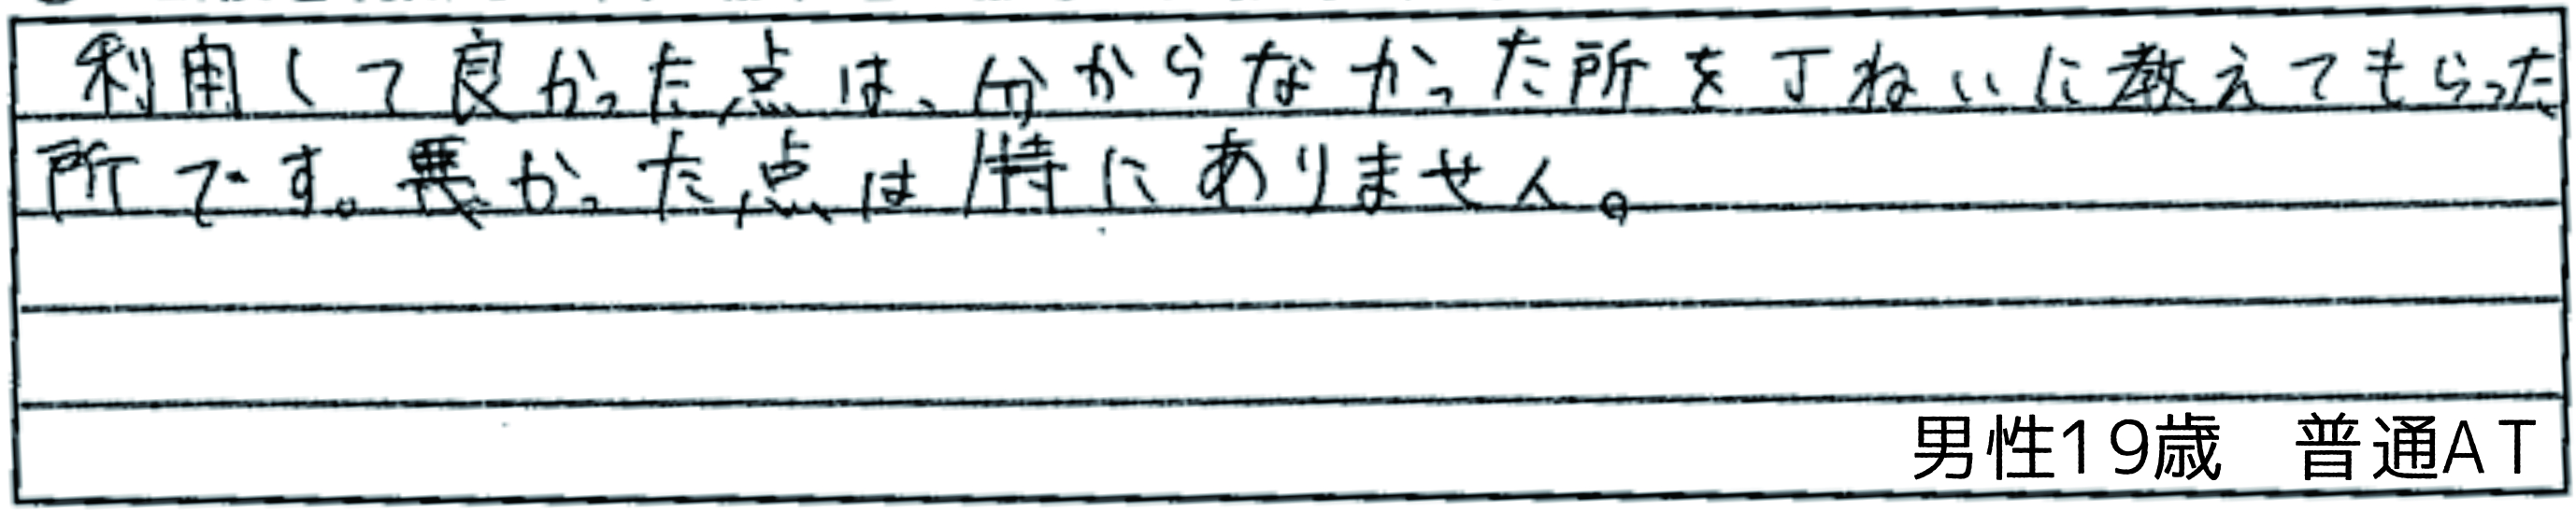 利用して良かった点は、分からなかった所を丁ねいに教えてもらった
所です。悪かった点は特にありません。
男性19歳　普通AT